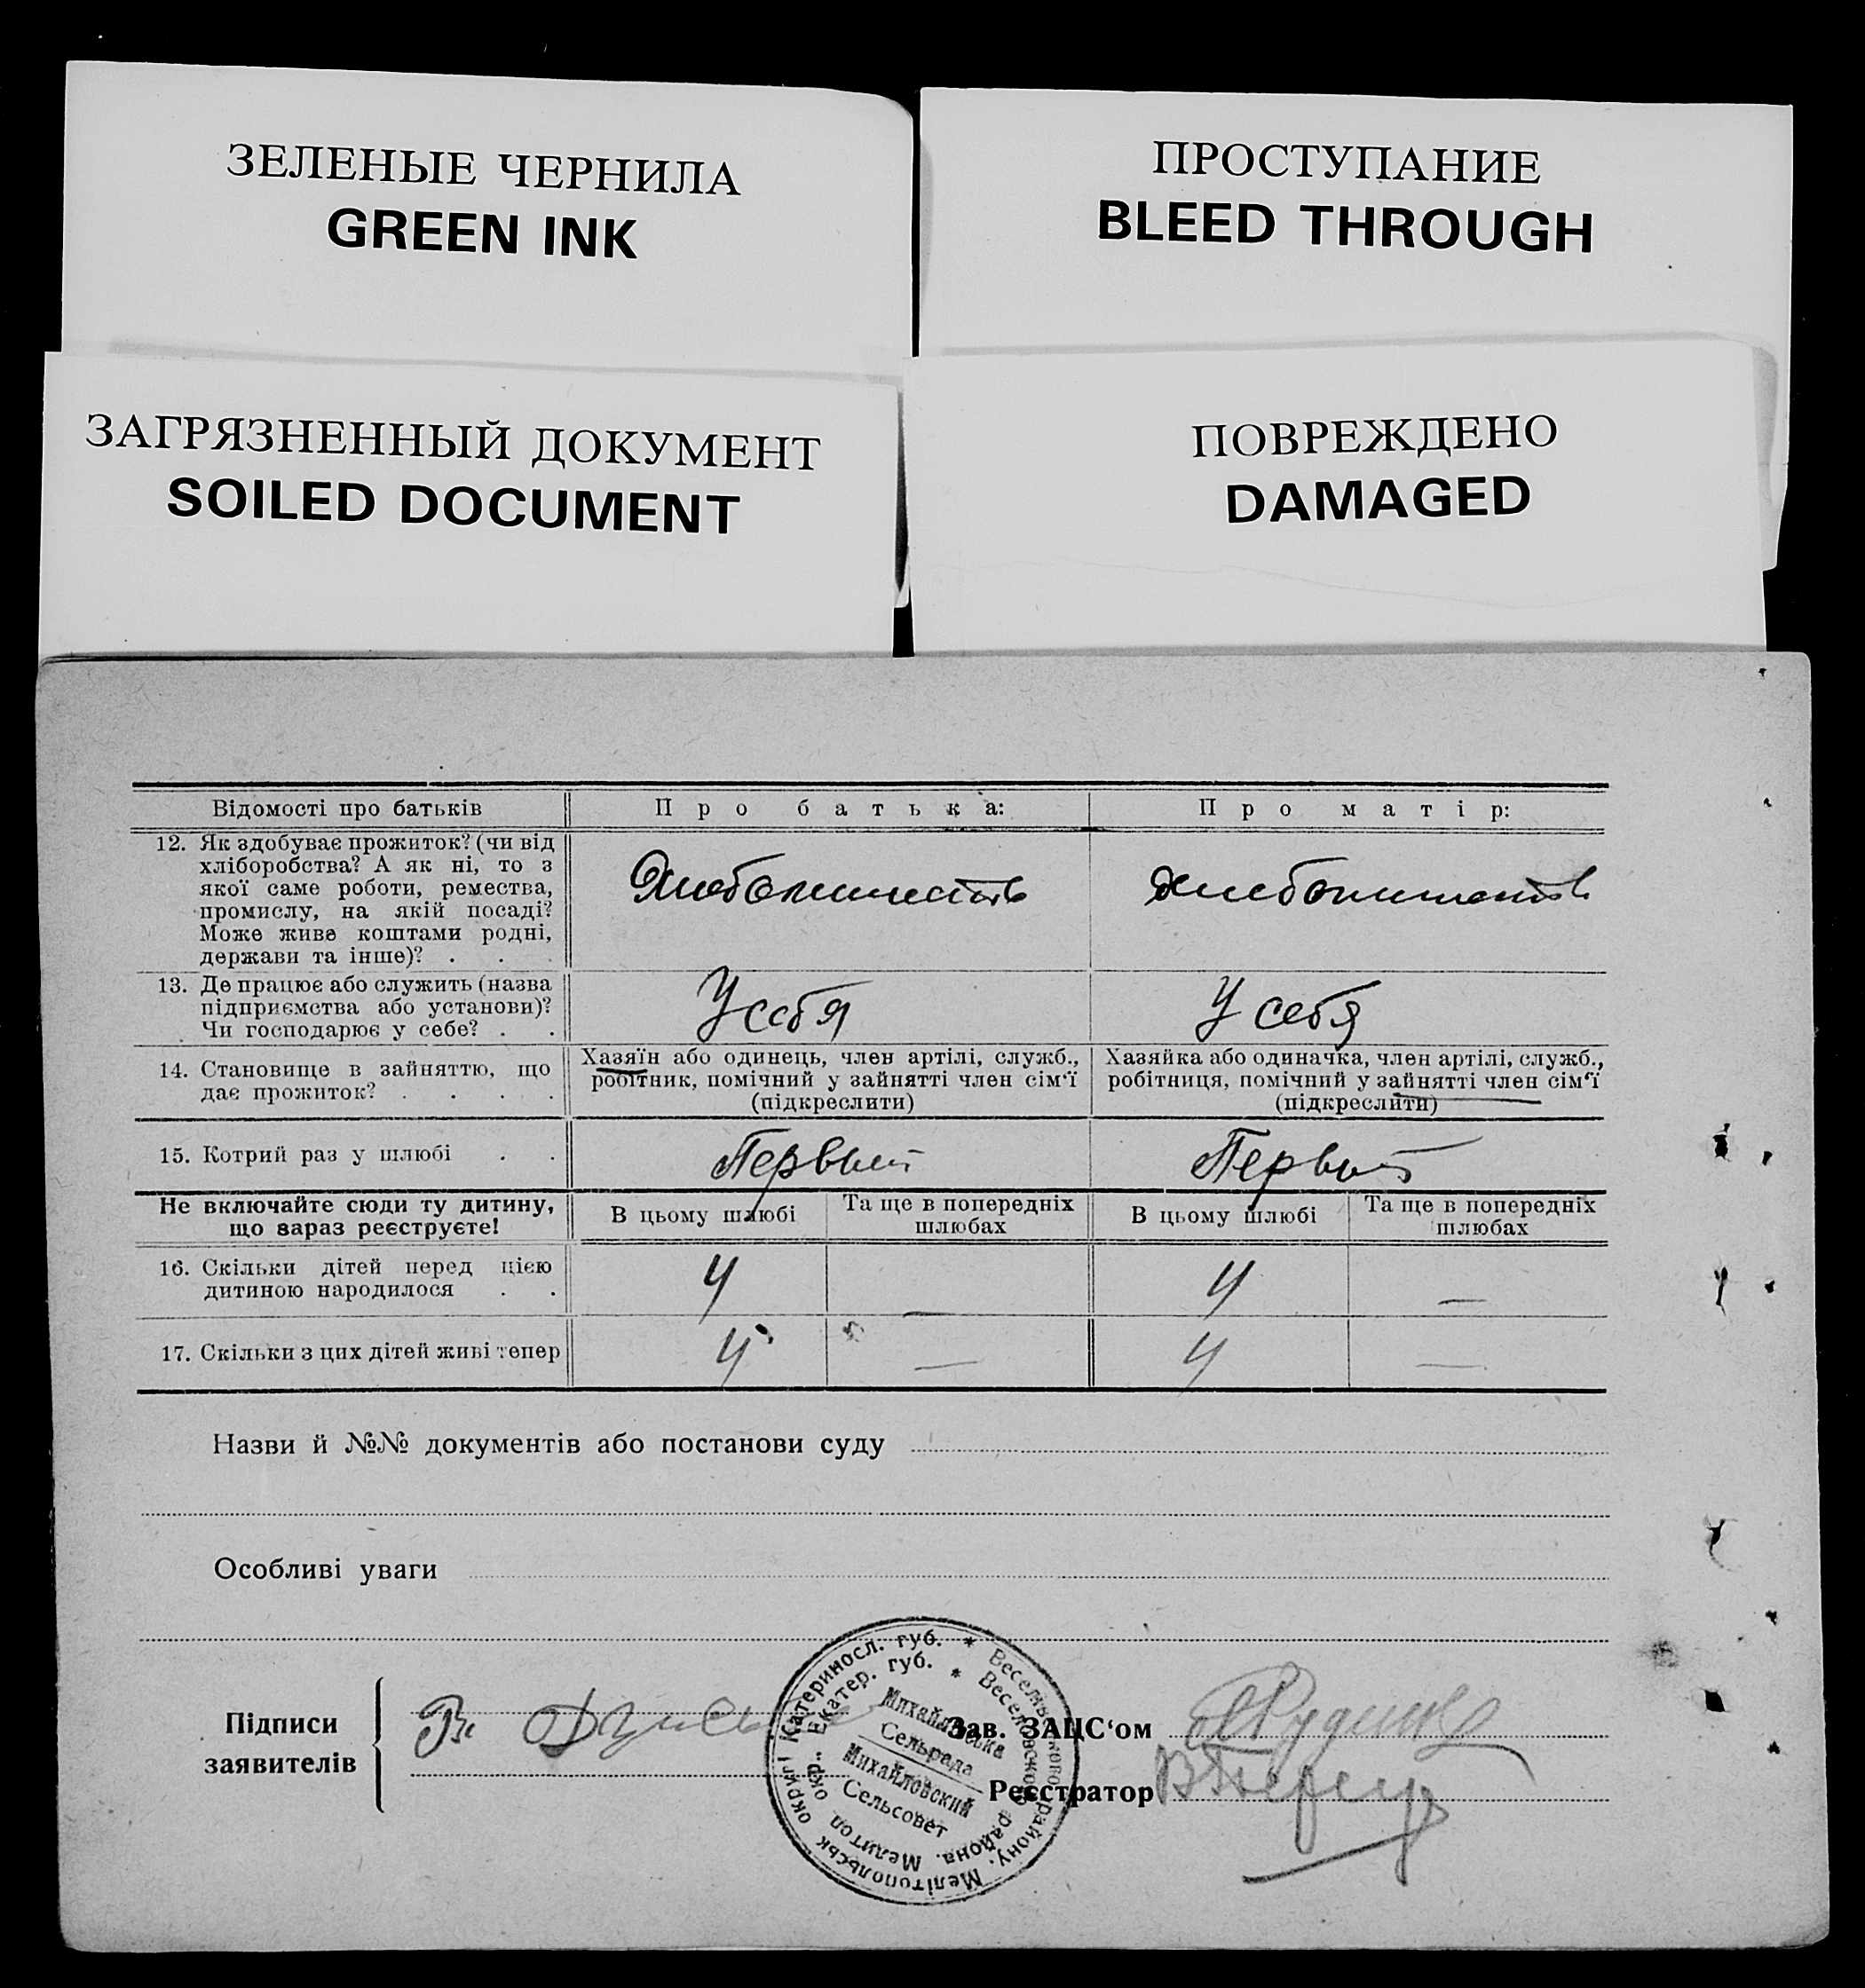 ЗЕЛЕНЫЕ ЧЕРНИЛА
GREEN INK
ПРОСТУПАНИЕ
BLEED THROUGH
ЗАГРЯЗНЕННЫЙ ДОКУМЕНТ
SOILED DOCUMENT
ПОВРЕЖДЕНО
DAMAGED
Відомості про батьків
Про батька:
Про матір:
12. Як здобуває прожиток? (чи від
хліборобства? А як ні, то з
якої саме роботи, ремества,
промислу, на якій посаді?
Може живе коштами родні,
держави та інше)? . .
Хлебопашеств
Хлебопашеств
13. Де працює або служить (назва
підприємства або установи)?
Чи господарює у себе? . .
У себя
У себя
14. Становище в зайняттю, що
дає прожиток? . . . .
Хазяїн або одинець, член артілі, служб.,
робітник, помічний у зайнятті член сім'ї
(підкреслити)
Хазяйка або одиначка, член артілі, служб.,
робітниця, помічний у зайнятті член сім'ї
(підкреслити)
15. Котрий раз у шлюбі . .
Первый
Первый
Не включайте сюди ту дитину,
що зараз реєструєте!
В цьому шлюбі
Та ще в попередніх
шлюбах
В цьому шлюбі
Та ще в попередніх
шлюбах
16. Скільки дітей перед цією
дитиною народилося . .
4
—
4
—
17. Скільки з цих дітей живі тепер
4
—
4
—
Назви й №№ документів або постанови суду
Особливі уваги
Підписи
заявителів
Зав. ЗАЦС‘ом
Реєстратор
Веселівського району, Мелітопольськ округи Катериносл. губ. *
Веселовского района, Мелитоп окр. Екатер. губ. *
Михайлівська
Сельрада
Михайловский
Сельсовет